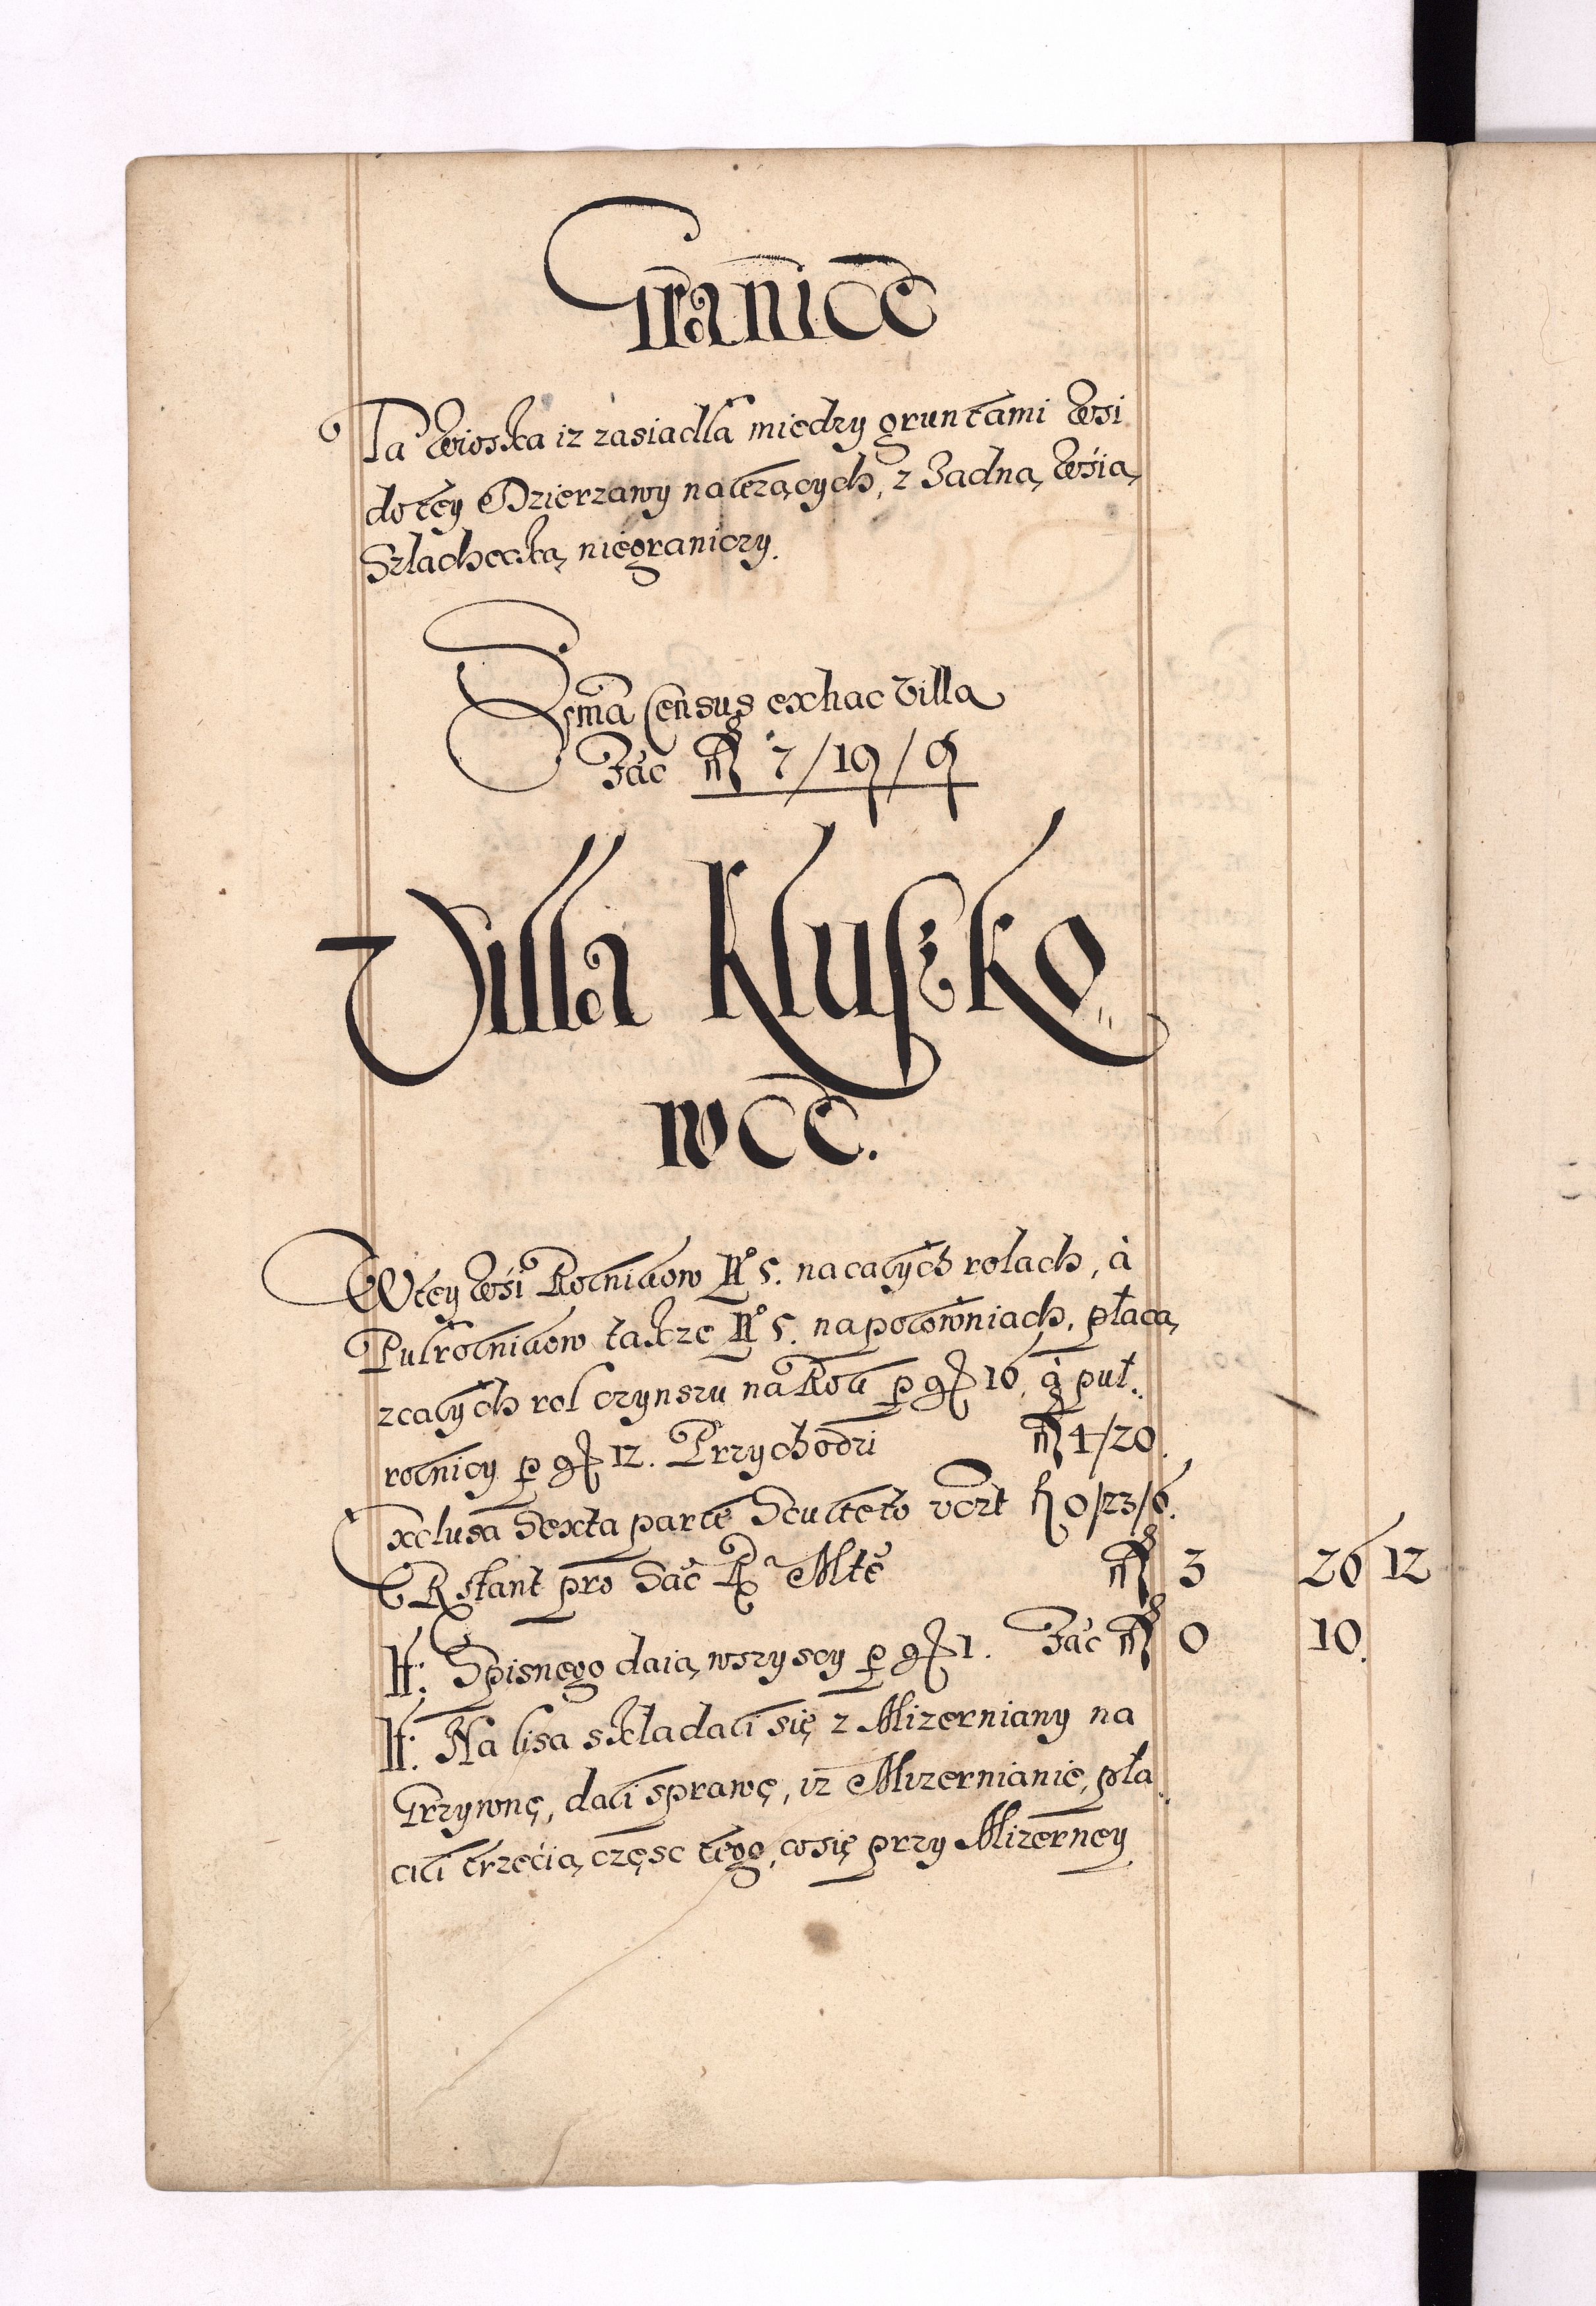 Granice
Ta Wioska iz zasiadła miedzy gruntami Wsi
do tey Dzierzawy nalezących, z Zadną Wsią
Szlachecką niegraniczy.
Sum̃a Census ex hac Villa
Fac̃ fl 7/19/9
Villa Kluszko„
wce.
W tey Wsi Rolnikow No 5. na całych rolach, à
Pułrolnikow takze No 5. na połowniach, płacą
z całych rol czynszu na Rok p gr 16, à puł„
rolnicy p gr 12. Przychodzi fl 4/20.
Exclusa Sexta parte Sculteto vert fl 0/23/6.
Rstant pro Sac̃ R Mte fl 3 26 12
It: Spisnego daią wszyscy p gr 1. Fac̃ fl 0 10.
It: Na lisa składali się z Mizerniany na
Grzywnę, dali sprawę, iz Mizernianie, pła„
cili trzecią częsc tego, co się przy Mizerney